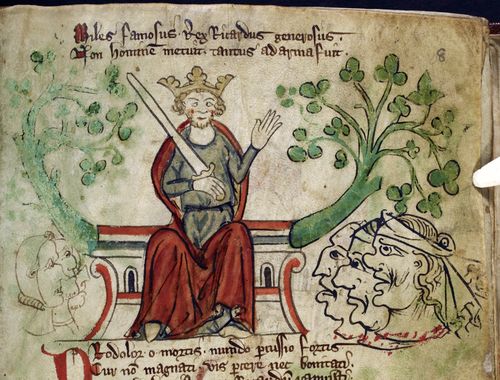 Miles famosus rex Ricardus generosus.
Non hominē metuit · tantus ad arma fuit ·
8
Pro dolor o mortis · mundo fortis
Cur nō magnati · vis pcere nec bonitati ·